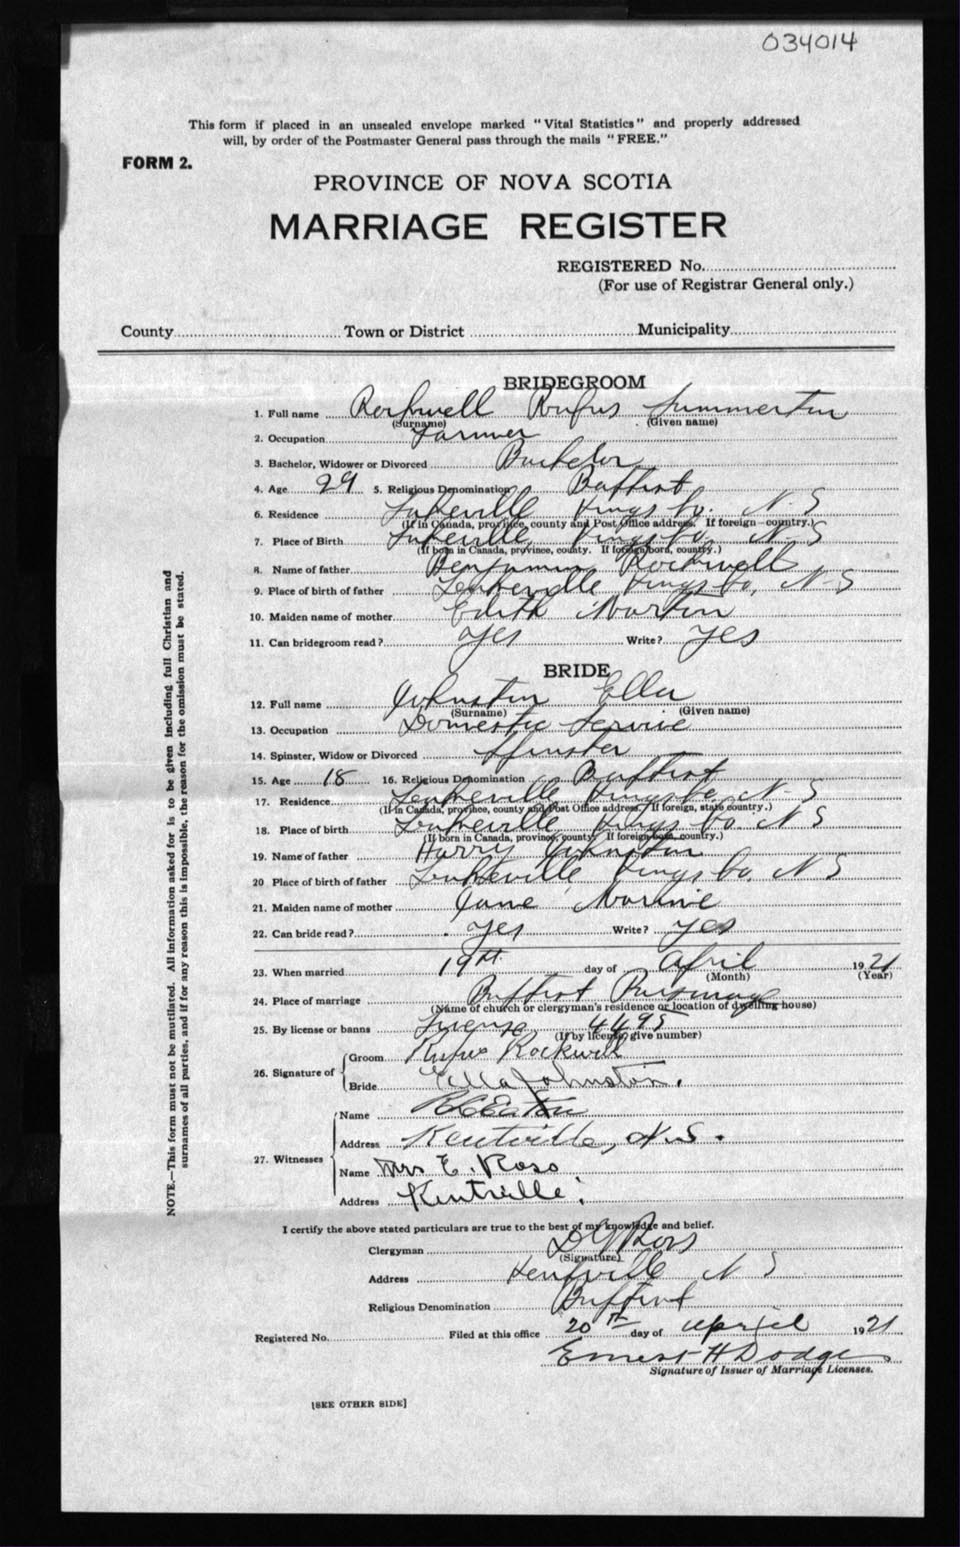 034014
This form if placed in an unsealed envelope marked "Vital Statistics" and properly addressed
will, by order of the Postmaster General pass through the mails "FREE."
FORM 2.
PROVINCE OF NOVA SCOTIA
MARRIAGE REGISTER
REGISTERED No.
(For use of Registrar General only.)
County Town or District Municipality
BRIDEGROOM
1. Full name Rockwell Rufus
(Surname) (Given name)
2. Occupation Farmer
3. Bachelor, Widower or Divorced Bachelor
4. Age 29 5. Religious Denomination Baptist
6. Residence Lakeville Kings Co. N.S
(If in Canada, province, county and Post Office address. If foreign country.)
7. Place of Birth Lakeville Kings Co. N.S
(If born in Canada, province, county. If foreign born, country.)
8. Name of father Benjamin Rockwell
9. Place of birth of father Lakeville Kings Co. N-S
10. Maiden name of mother Edith Morton
11. Can bridegroom read? Yes Write? Yes
BRIDE
12. Full name Johnston Ella
(Surname) (Given name)
13. Occupation Domestic Service
14. Spinster, Widow or Divorced Spinster
15. Age 18 16. Religious Denomination Baptist
17. Residence Lakeville Kings Co. N-S
(If in Canada, province, county and Post Office address. If foreign, state country.)
18. Place of birth Lakeville Kings Co. N S
(If born in Canada, province, county. If foreign born, country.)
19. Name of father Harry Johnston
20 Place of birth of father Lakeville Kings Co. N S
21. Maiden name of mother Jane
22. Can bride read? Yes Write? Yes
23. When married 19th day of April 1921
(Month) (Year)
24. Place of marriage Baptist Parsonage
(Name of church or clergyman's residence or location of dwelling house)
25. By license or banns License 4495
(If by license, give number)
26. Signature of
Groom Rufus Rockwell
Bride Ella Johnston.
27. Witnesses
Name Eaton
Address Kentville, N.S.
Name Mrs E. Ross
Address Kentville.
I certify the above stated particulars are true to the best of my knowledge and belief.
Clergyman Ross
(Signature)
Address Kentville N S
Religious Denomination Baptist
Registered No. Filed at this office 20th day of April 1921
Ernest H Dodge
Signature of Issuer of Marriage Licenses.
[SEE OTHER SIDE]
NOTE.—This form must not be mutilated. All information asked for is to be given including full Christian and
surnames of all parties, and if for any reason this is impossible, the reason for the omission must be stated.